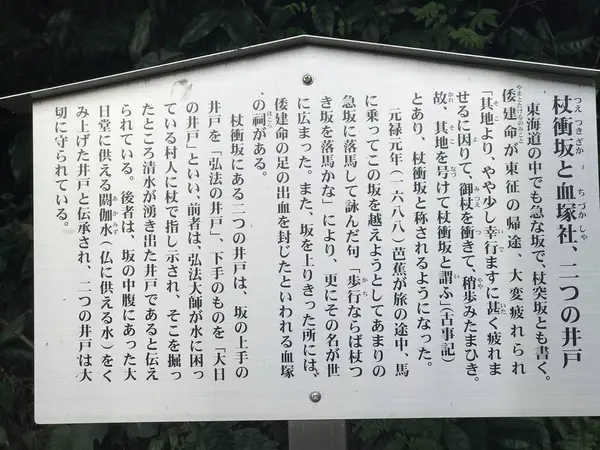 杖衝坂と血塚社、二つの井戸
つえつきざか ちづかしゃ
東海道の中でも急な坂で、杖突坂とも書く。
倭建命が東征の帰途、大変疲れられ
やまとたけるのみこと
「其地より、やや少し幸行ますに甚く疲れま
そこ いで いた
せるに因りて、御杖を衝きて、稍歩みたまひき。
よ みつえ つ やや
故、其地を号けて杖衝坂と謂ふ」(古事記)
かれ そこ なづ い
とあり、杖衝坂と称されるようになった。
元禄元年(一六八八)芭蕉が旅の途中、馬
に乗ってこの坂を越えようとしてあまりの
急坂に落馬して詠んだ句「歩行ならば杖つ
かち
き坂を落馬かな」により、更にその名が世
に広まった。また、坂を上りきった所には、
倭建命の足の出血を封じたといわれる血塚
の祠がある。
ほこら
杖衝坂にある二つの井戸は、坂の上手の
井戸を「弘法の井戸」、下手のものを「大日
の井戸」といい、前者は、弘法大師が水に困っ
ている村人に杖で指し示され、そこを掘っ
たところ清水が湧き出た井戸であると伝え
られている。後者は、坂の中腹にあった大
日堂に供える閼伽水(仏に供える水)をく
あかみず
み上げた井戸と伝承され、二つの井戸は大
切に守られている。